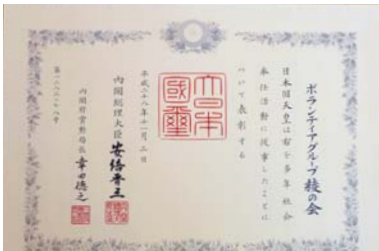 ボランティアグループ 枝の会
日本国天皇は右を多年社会
奉仕活動に従事したことに
ついて表彰する
大日本
國璽
平成二十八年十一月二日
内閣総理大臣 安倍晋三
内閣府賞勲局長 幸田徳之